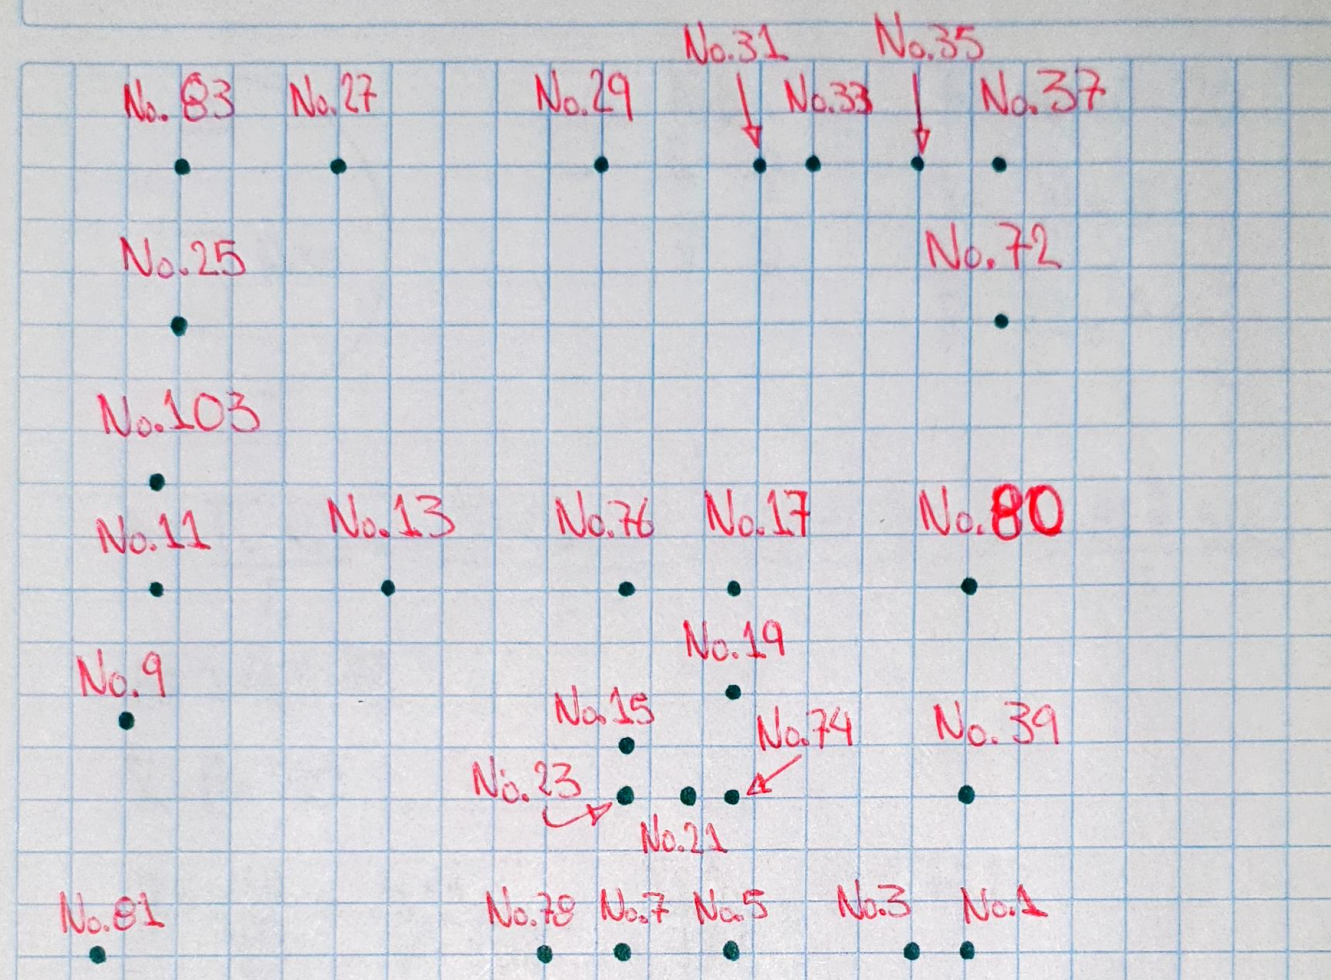 No.31 No.35
No. 83 No.27 No.29 No.33 No.37
No.25 No.72
No.103
No.11 No.13 No.76 No.17 No.80
No.19
No.9 No.15 No.74 No.39
No.23
No.21
No.81 No.78 No.7 No.5 No.3 No.1